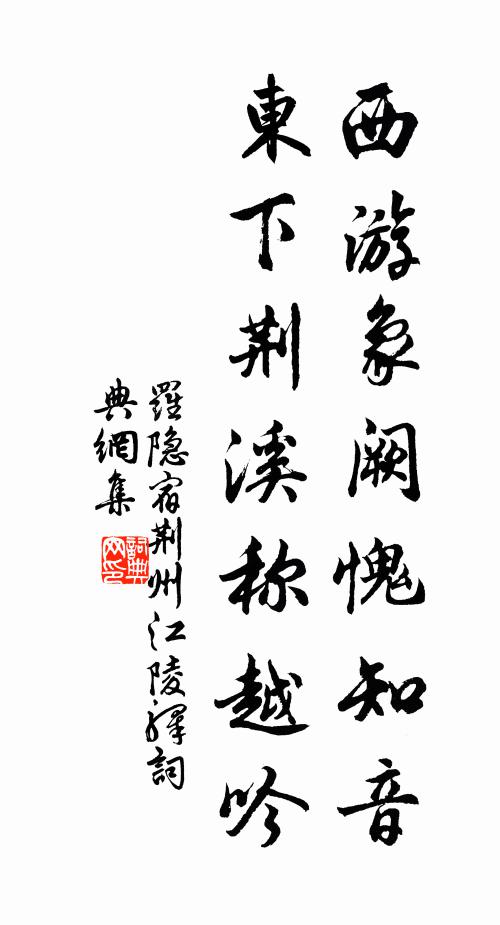 西游象阙愧知音
東下荆溪称越吟
羅隐宿荆州江陵驛詞
典網集
詞典
网印